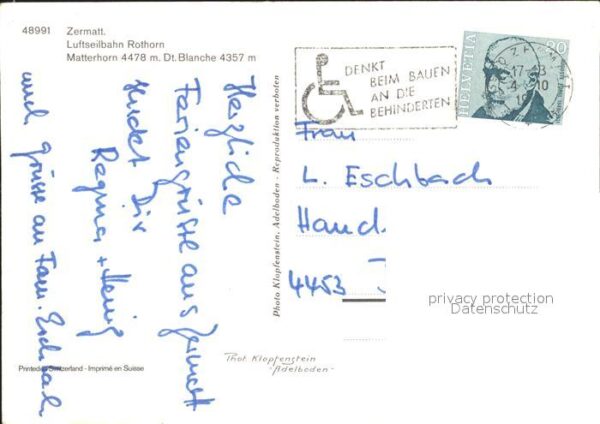 48991 Zermatt.
Luftseilbahn Rothorn
Matterhorn 4478 m. Dt. Blanche 4357 m
Herzliche
Feriengrüsse aus Zermatt
sendet Dir
Regina + Heinz
und Grüsse an Fam. Eschbach
Printed in Switzerland - Imprimé en Suisse
Photo Klopfenstein, Adelboden - Reproduktion verboten
Phot. Klopfenstein
Adelboden
DENKT
BEIM BAUEN
AN DIE
BEHINDERTEN
HELVETIA
80
17-18
Frau
L. Eschbach
Hand
4453
privacy protection
Datenschutz